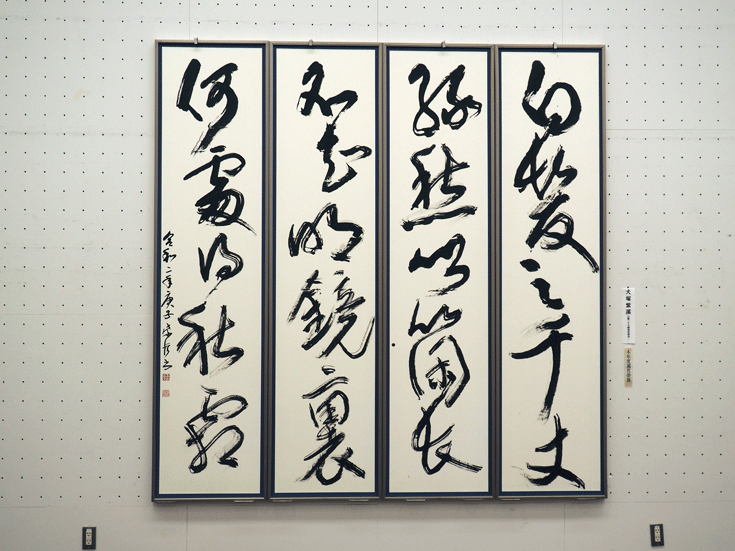 白髪三千丈
縁愁似箇長
不知明鏡裏
何處得秋霜
令和二年庚子